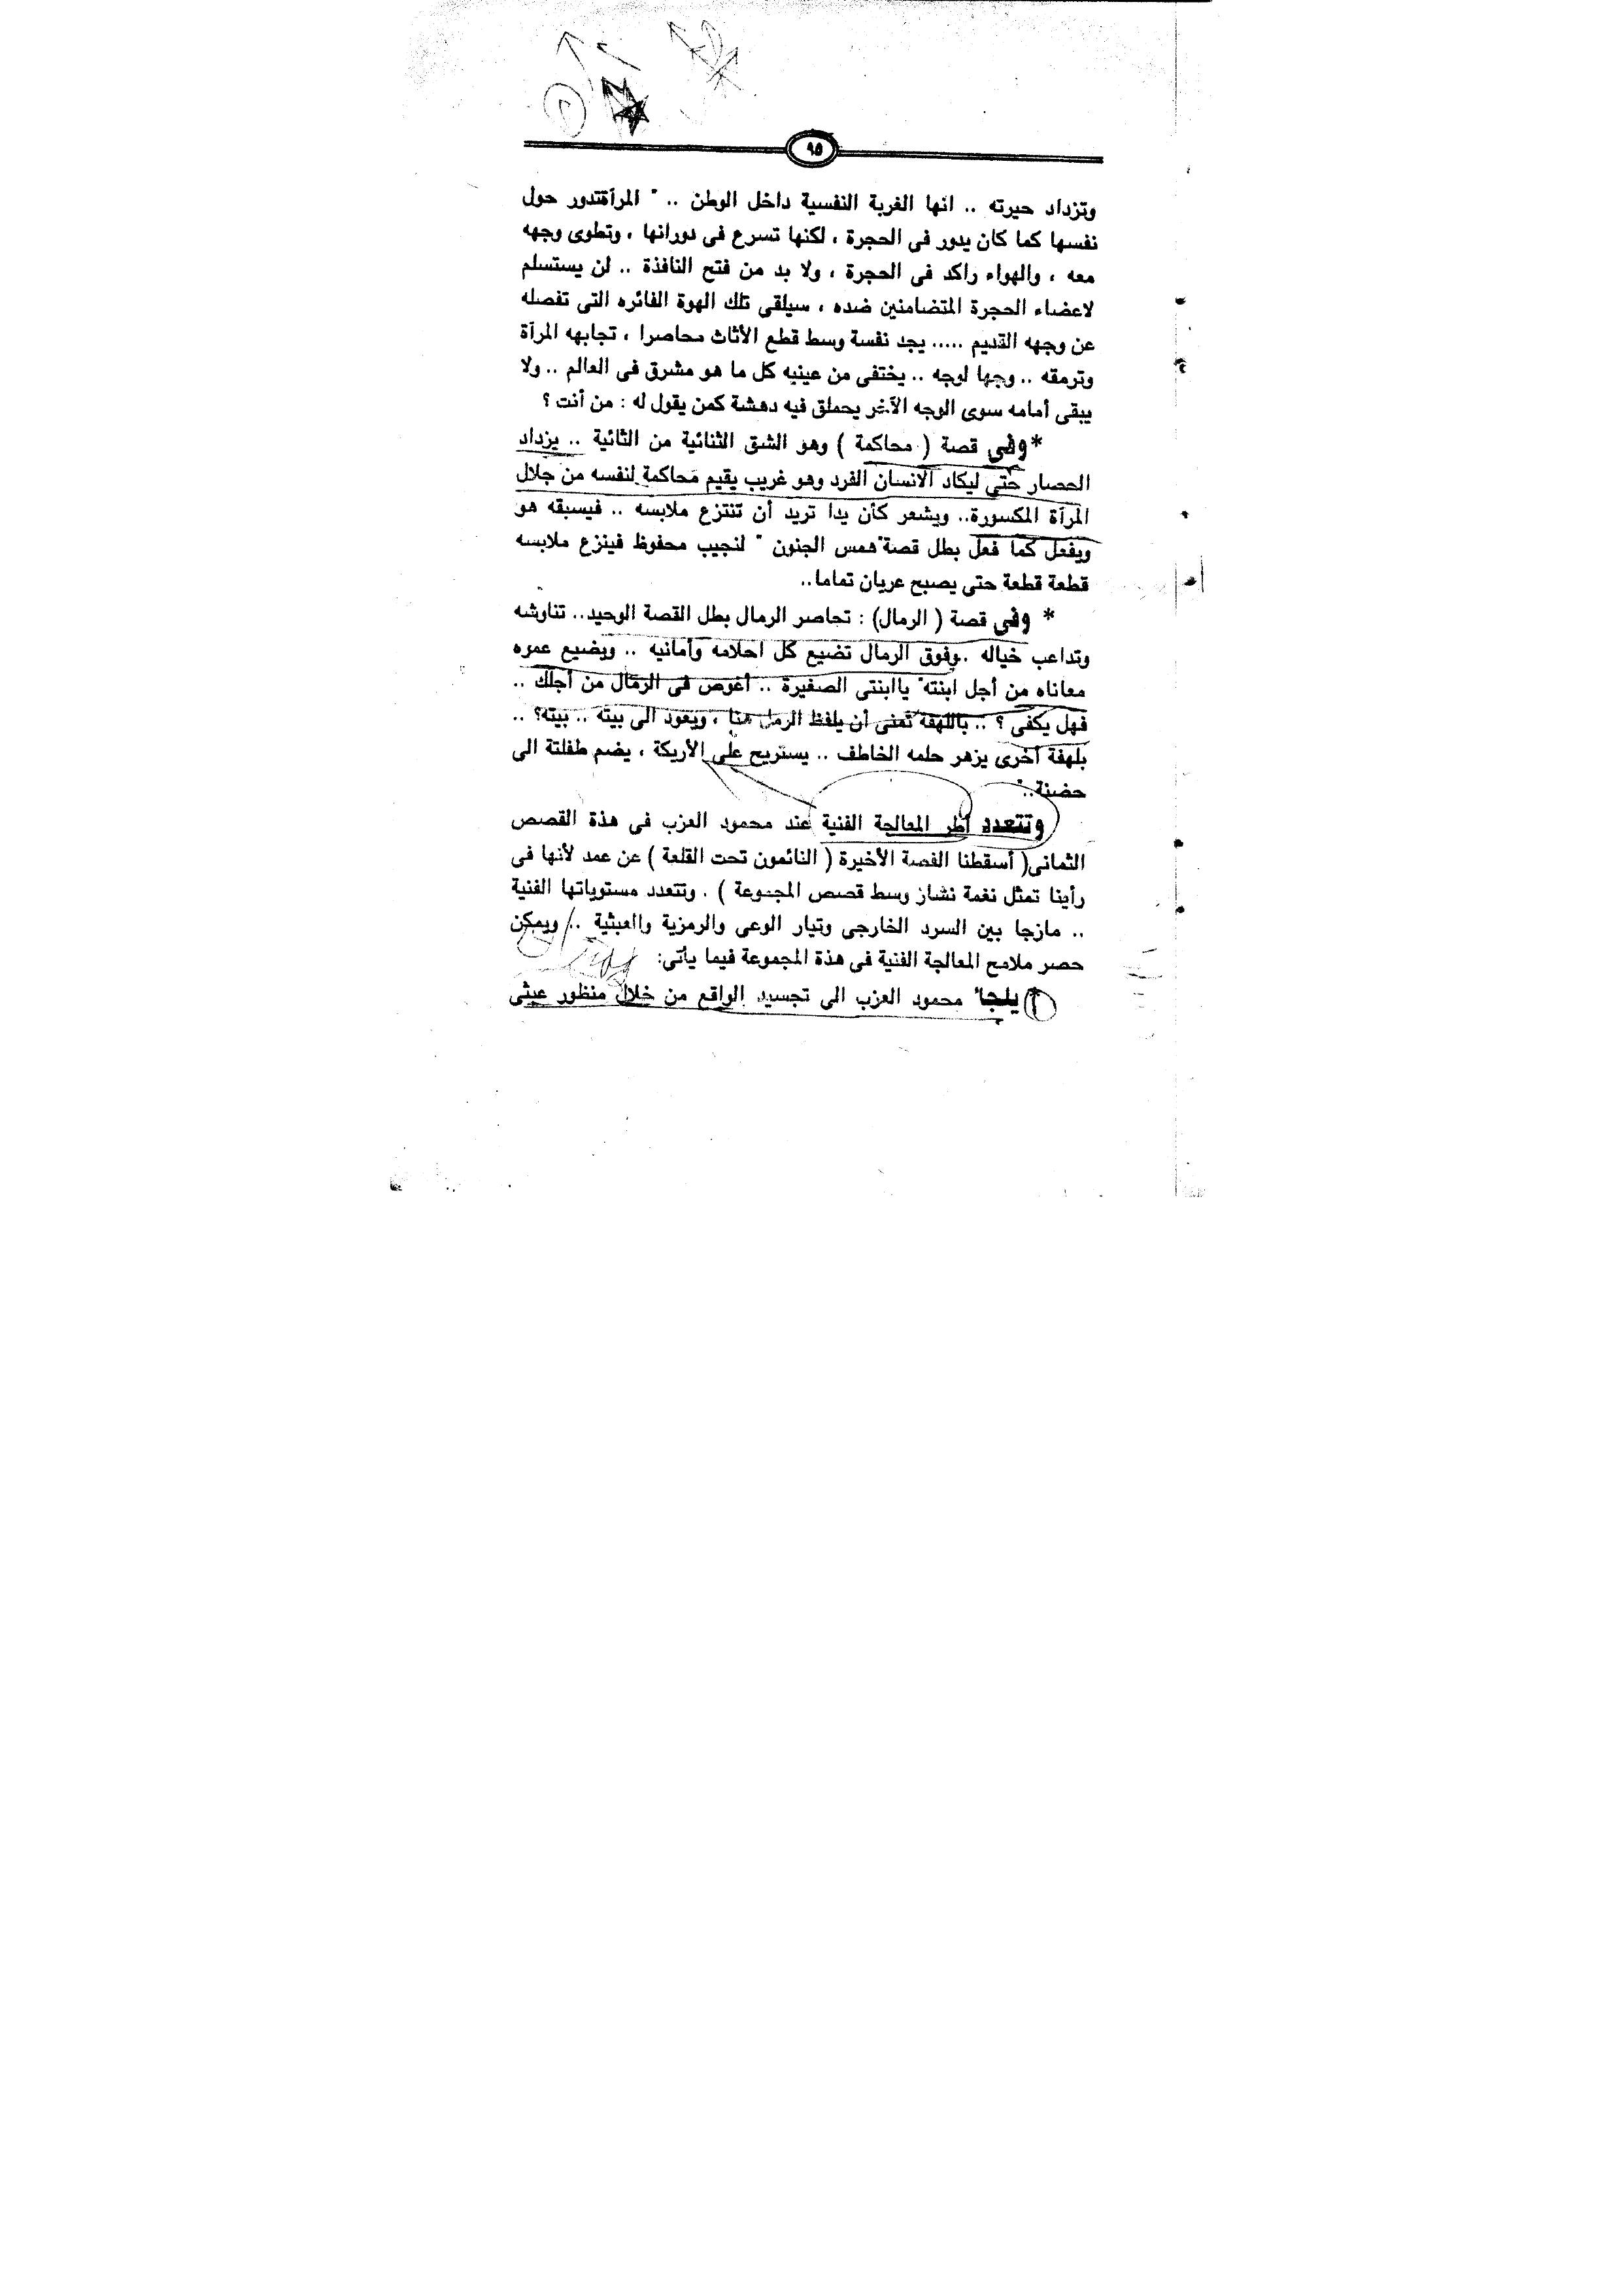 ٩٥
وتزداد حيرته .. انها الغربة النفسية داخل الوطن .. " المرأةتدور حول
نفسها كما كان يدور فى الحجرة ، لكنها تسرع فى دورانها ، وتطوى وجهه
معه ، والهواء راكد فى الحجرة ، ولا بد من فتح النافذة .. لن يستسلم
لاعضاء الحجرة المتضامنين ضده ، سيلقى تلك الهوة الفائره التى تفصله
عن وجهه القديم ..... يجد نفسة وسط قطع الأثاث محاصرا ، تجابهه المرآة
وترمقه .. وجها لوجه .. يختفى من عينيه كل ما هو مشرق فى العالم .. ولا
يبقى أمامه سوى الوجه الآخر يحملق فيه دهشة كمن يقول له : من أنت ؟
*وفى قصة ( محاكمة ) وهو الشق الثنائية من الثانية .. يزداد
الحصار حتى ليكاد الانسان الفرد وهو غريب يقيم محاكمة لنفسه من جلال
المرآة المكسورة.. ويشعر كأن يدا تريد أن تنتزع ملابسه .. فيسبقه هو
ويفعل كما فعل بطل قصة"همس الجنون " لنجيب محفوظ فينزع ملابسه
قطعة قطعة حتى يصبح عريان تماما..
* وفى قصة ( الرمال) : تحاصر الرمال بطل القصة الوحيد.. تناوشه
وتداعب خياله ..وفوق الرمال تضيع كل احلامه وأمانيه .. ويضيع عمره
معاناه من أجل ابنته" ياابنتى الصغيرة .. أغوص فى الرمال من أجلك ..
فهل يكفى ؟ .. باللهفة تمنى أن يلفظ الرمل هنا ، ويعود الى بيته .. بيته؟ ..
بلهفة أخرى يزهر حلمه الخاطف .. يستريح على الأريكة ، يضم طفلتة الى
حضنة.."
وتتعدد أطر المعالجة الفنية عند محمود العزب فى هذة القصص
الثمانى( أسقطنا القصة الأخيرة ( النائمون تحت القلعة ) عن عمد لأنها فى
رأينا تمثل نغمة نشاز وسط قصص المجموعة ) . وتتعدد مستوياتها الفنية
.. مازجا بين السرد الخارجى وتيار الوعى والرمزية والعبثية .. ويمكن
حصر ملامح المعالجة الفنية فى هذة المجموعة فيما يأتى:
يلجأ محمود العزب الى تجسيد الواقع من خلال منظور عبثى